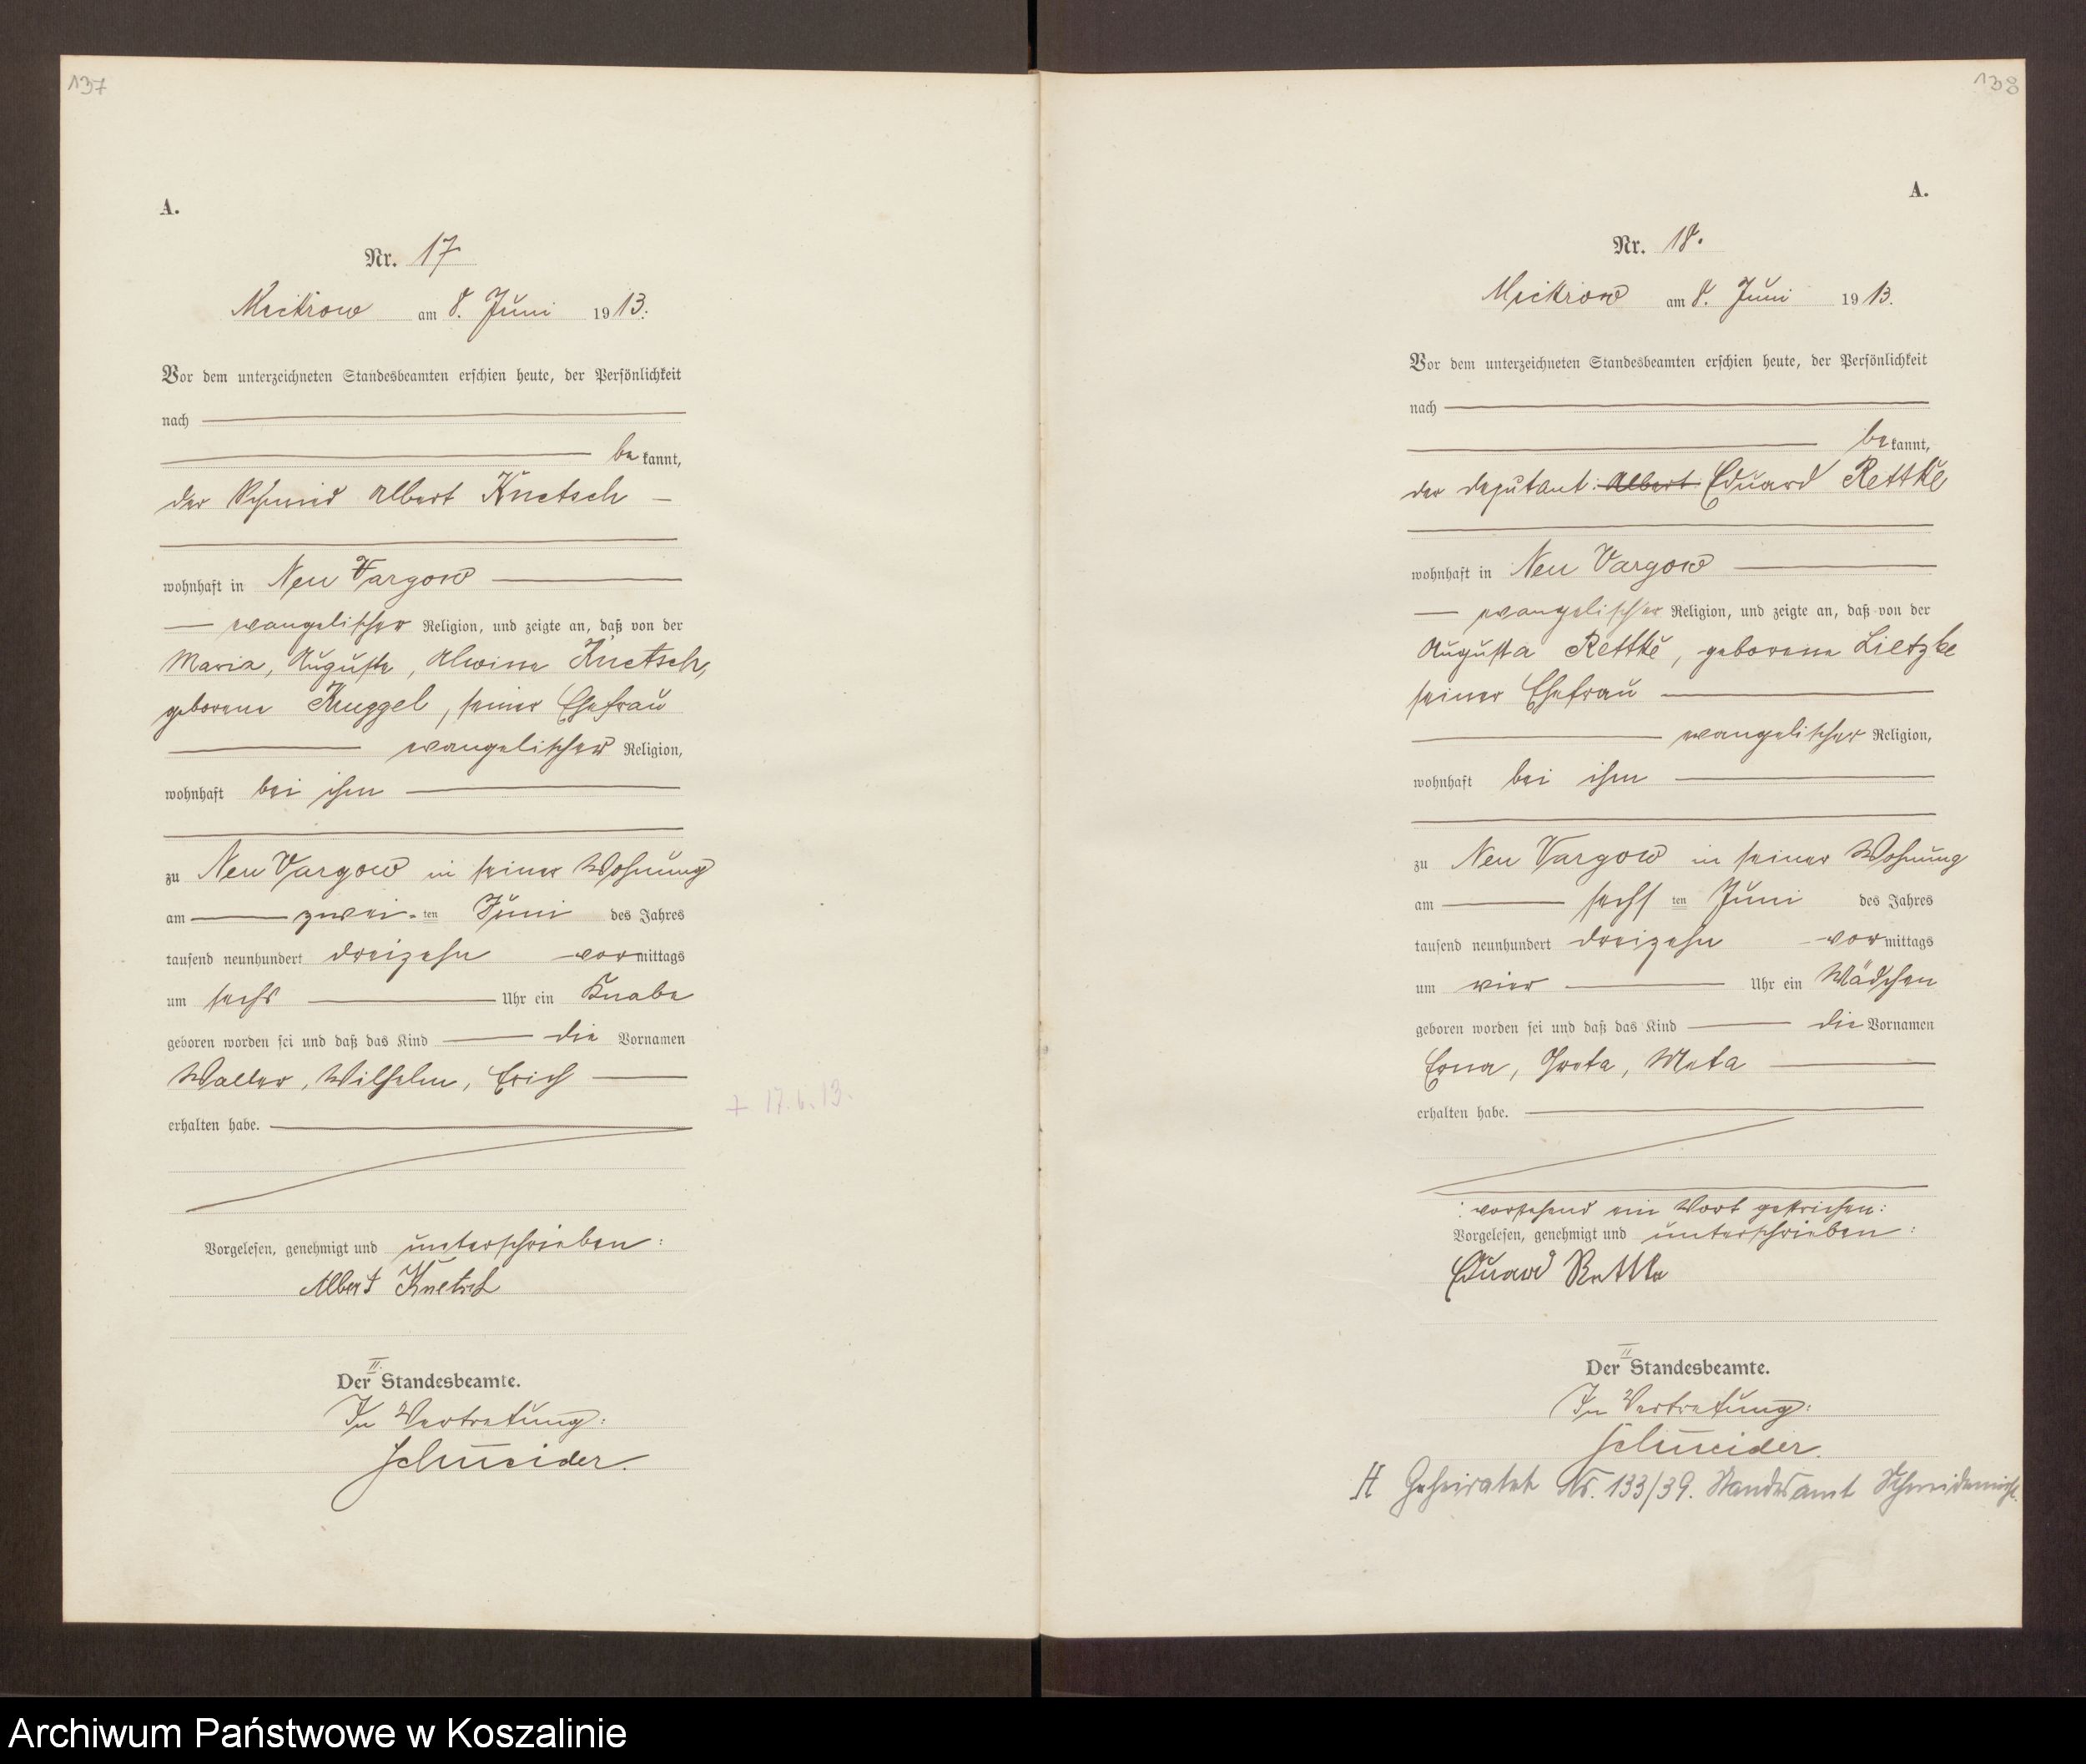 137
A.
Nr. 17
Mickrow am 8. Juni 1913.
Vor dem unterzeichneten Standesbeamten erschien heute, der Persönlichkeit
nach
bekannt,
der Schmied Albert Knetsch
wohnhaft in Neu Vargow
evangelischer Religion, und zeigte an, daß von der
Maria, Auguste, Alwine Knetsch,
geborene Kruggel, seiner Ehefrau
evangelischer Religion,
wohnhaft bei ihm
zu Neu Vargow in seiner Wohnung
am zwei-ten Juni des Jahres
tausend neunhundert dreizehn vormittags
um sechs Uhr ein Knabe
geboren worden sei und daß das Kind die Vornamen
Walter, Wilhelm, Erich
erhalten habe.
+ 17.6.13.
Vorgelesen, genehmigt und unterschrieben:
Albert Knetsch
II.
Der Standesbeamte.
In Vertretung:
Schneider.
138
A.
Nr. 18.
Mickrow am 8. Juni 1913.
Vor dem unterzeichneten Standesbeamten erschien heute, der Persönlichkeit
nach
bekannt,
der Deputant: Albert Eduard Rettke
wohnhaft in Neu Vargow
evangelischer Religion, und zeigte an, daß von der
Augusta Rettke, geborene Lietzke
seiner Ehefrau
evangelischer Religion,
wohnhaft bei ihm
zu Neu Vargow in seiner Wohnung
am sechsten Juni des Jahres
tausend neunhundert dreizehn vormittags
um vier Uhr ein Mädchen
geboren worden sei und daß das Kind die Vornamen
Erna, Greta, Meta
erhalten habe.
: vorstehend ein Wort gestrichen:
Vorgelesen, genehmigt und unterschrieben:
Eduard Rettke
II
Der Standesbeamte.
In Vertretung:
Schneider.
H Geheiratet Nr. 133/39. Standesamt
Archiwum Państwowe w Koszalinie